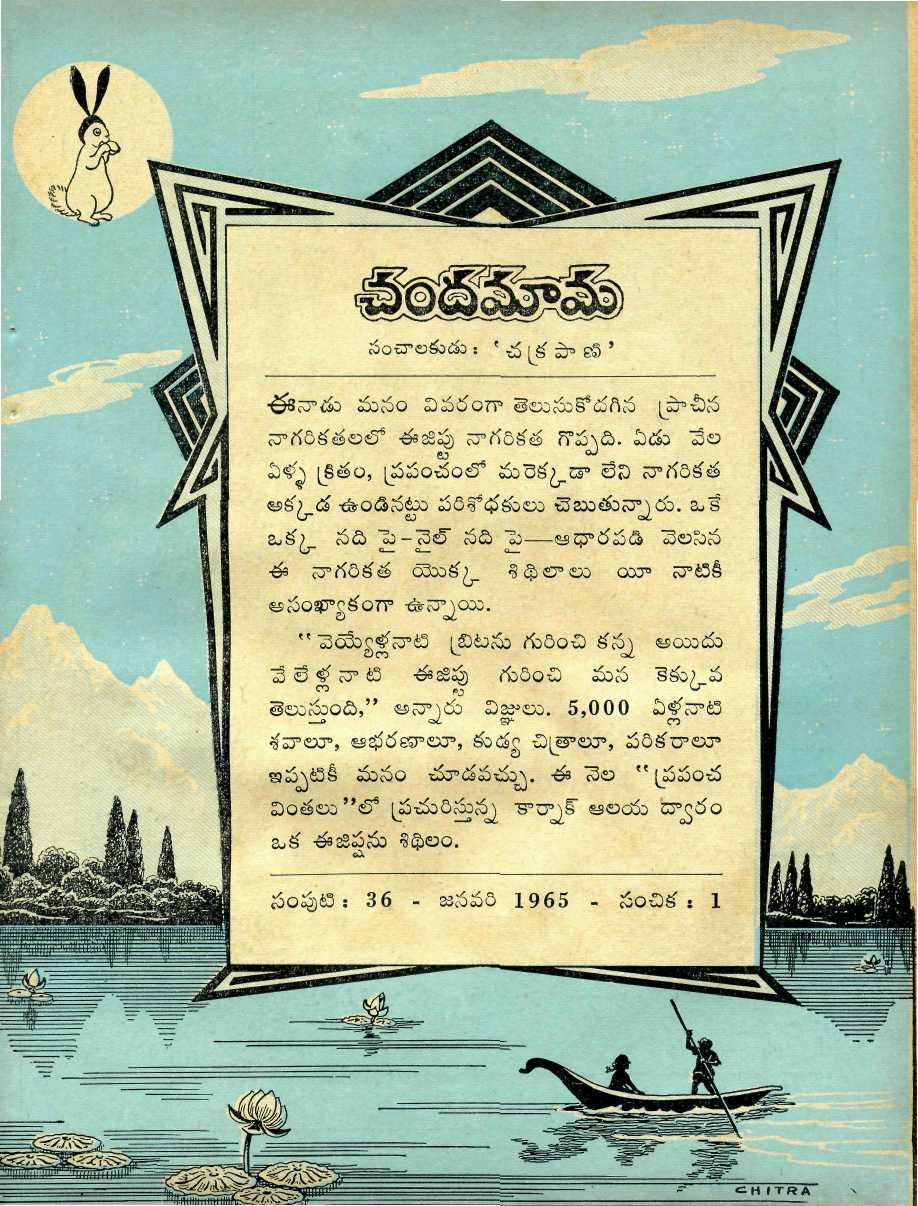 చందమామ
సంచాలకుడు : ‘చక్రపాణి’
ఈనాడు మనం వివరంగా తెలుసుకోదగిన ప్రాచీన
నాగరికతలలో ఈజిప్టు నాగరికత గొప్పది. ఏడు వేల
ఏళ్ళ క్రితం, ప్రపంచంలో మరెక్కడా లేని నాగరికత
అక్కడ ఉండినట్టు పరిశోధకులు చెబుతున్నారు. ఒకే
ఒక్క నది పై-నైల్ నది పై—ఆధారపడి వెలసిన
ఈ నాగరికత యొక్క శిథిలాలు యీ నాటికీ
అసంఖ్యాకంగా ఉన్నాయి.
“వెయ్యేళ్లనాటి బ్రిటను గురించి కన్న అయిదు
వేలేళ్లనాటి ఈజిప్టు గురించి మన కెక్కువ
తెలుస్తుంది,” అన్నారు విజ్ఞులు. 5,000 ఏళ్లనాటి
శవాలూ, ఆభరణాలూ, కుడ్య చిత్రాలూ, పరికరాలూ
ఇప్పటికీ మనం చూడవచ్చు. ఈ నెల “ప్రపంచ
వింతలు”లో ప్రచురిస్తున్న కార్నాక్ ఆలయ ద్వారం
ఒక ఈజిప్షను శిథిలం.
సంపుటి : 36 - జనవరి 1965 - సంచిక : 1
CHITRA